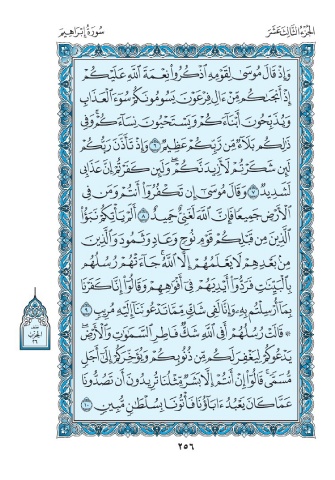 الجزء الثالث عشر
سورة إبراهيم
وَإِذْ قَالَ مُوسَىٰ لِقَوْمِهِ ٱذْكُرُوا۟ نِعْمَةَ ٱللَّهِ عَلَيْكُمْ
إِذْ أَنجَىٰكُم مِّنْ ءَالِ فِرْعَوْنَ يَسُومُونَكُمْ سُوٓءَ ٱلْعَذَابِ
وَيُذَبِّحُونَ أَبْنَآءَكُمْ وَيَسْتَحْيُونَ نِسَآءَكُمْ ۚ وَفِى
ذَٰلِكُم بَلَآءٌ مِّن رَّبِّكُمْ عَظِيمٌ ٦ وَإِذْ تَأَذَّنَ رَبُّكُمْ
لَئِن شَكَرْتُمْ لَأَزِيدَنَّكُمْ ۖ وَلَئِن كَفَرْتُمْ إِنَّ عَذَابِى
لَشَدِيدٌ ٧ وَقَالَ مُوسَىٰٓ إِن تَكْفُرُوٓا۟ أَنتُمْ وَمَن فِى
ٱلْأَرْضِ جَمِيعًا فَإِنَّ ٱللَّهَ لَغَنِىٌّ حَمِيدٌ ٨ أَلَمْ يَأْتِكُمْ نَبَؤُا۟
ٱلَّذِينَ مِن قَبْلِكُمْ قَوْمِ نُوحٍ وَعَادٍ وَثَمُودَ ۛ وَٱلَّذِينَ
مِنۢ بَعْدِهِمْ ۛ لَا يَعْلَمُهُمْ إِلَّا ٱللَّهُ ۚ جَآءَتْهُمْ رُسُلُهُم
بِٱلْبَيِّنَـٰتِ فَرَدُّوٓا۟ أَيْدِيَهُمْ فِىٓ أَفْوَٰهِهِمْ وَقَالُوٓا۟ إِنَّا كَفَرْنَا
بِمَآ أُرْسِلْتُم بِهِۦ وَإِنَّا لَفِى شَكٍّ مِّمَّا تَدْعُونَنَآ إِلَيْهِ مُرِيبٍ ٩
۞ قَالَتْ رُسُلُهُمْ أَفِى ٱللَّهِ شَكٌّ فَاطِرِ ٱلسَّمَـٰوَٰتِ وَٱلْأَرْضِ ۖ
يَدْعُوكُمْ لِيَغْفِرَ لَكُم مِّن ذُنُوبِكُمْ وَيُؤَخِّرَكُمْ إِلَىٰٓ أَجَلٍ
مُّسَمًّى ۚ قَالُوٓا۟ إِنْ أَنتُمْ إِلَّا بَشَرٌ مِّثْلُنَا تُرِيدُونَ أَن تَصُدُّونَا
عَمَّا كَانَ يَعْبُدُ ءَابَآؤُنَا فَأْتُونَا بِسُلْطَـٰنٍ مُّبِينٍ ١٠
نصف
الحزب
٢٦
٢٥٦